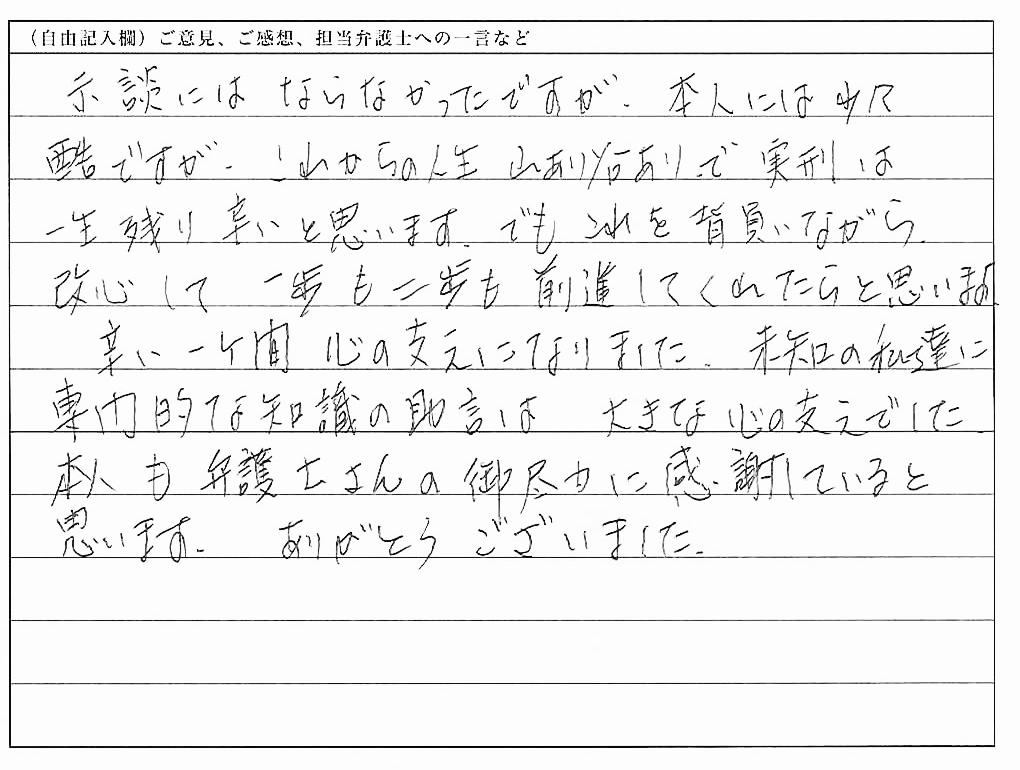 (自由記入欄)ご意見、ご感想、担当弁護士への一言など
示談には ならなかったですが、本人には少々
酷ですが、これからの人生 山あり谷あり、で 実刑は
一生残り 辛いと思います。でも これを 背負いながら、
改心して 一歩も二歩も 前進してくれたらと思います
辛い 一ケ間 心の支えになりました。未知の私達に
専門的な知識の助言は 大きな心の支えでした。
本人も 弁護士さんの 御尽力に感謝していると
思います。 ありがとう ございました。